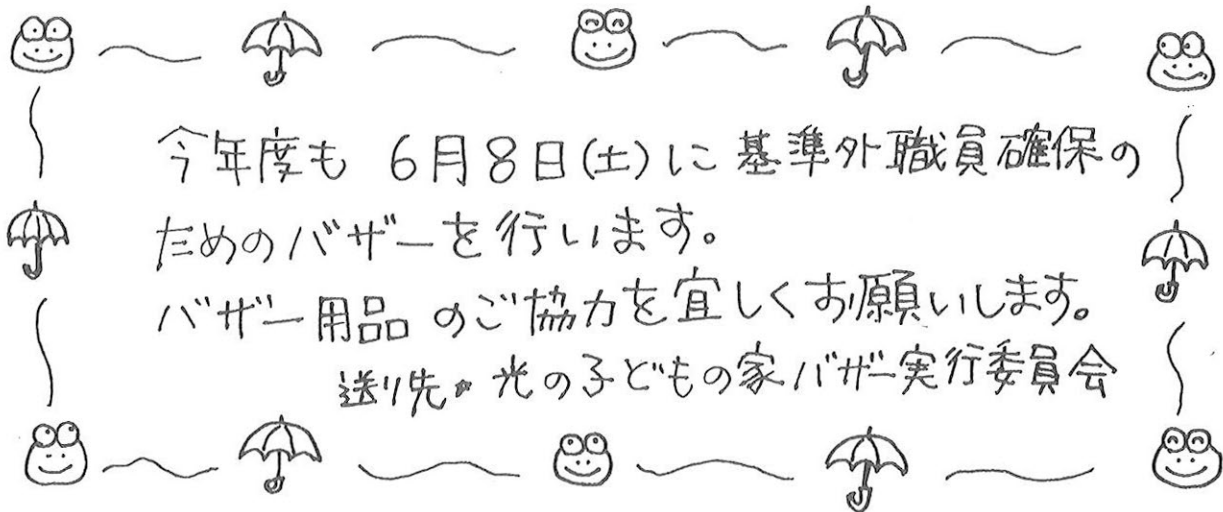 今年度も 6月8日(土)に基準外職員確保の
ためのバザーを行います。
バザー用品のご協力を宜しくお願いします。
送り先・光の子どもの家バザー実行委員会